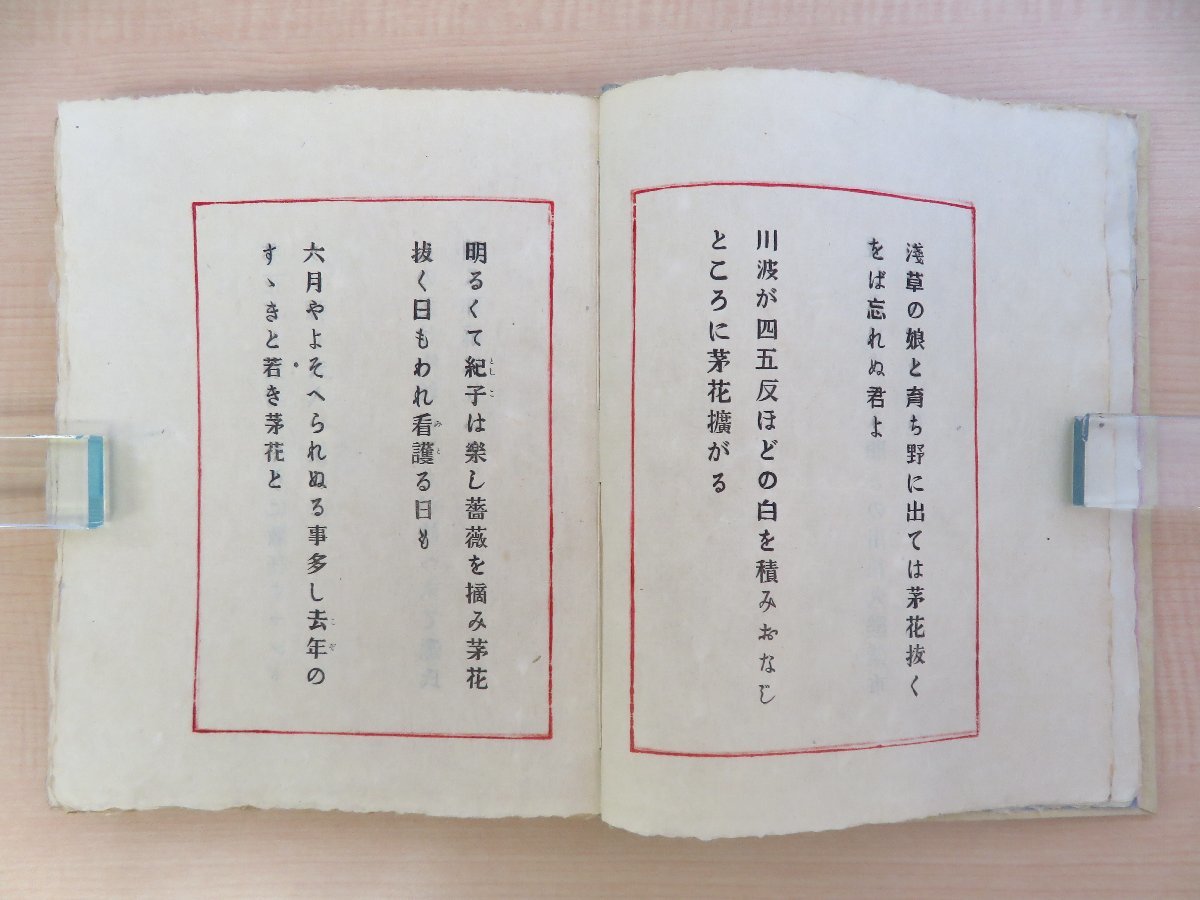 淺草の娘と育ち野に出ては茅花抜く
をば忘れぬ君よ
川波が四五反ほどの白を積みおなじ
ところに茅花擴がる
明るくて紀子は樂し薔薇を摘み茅花
としこ
抜く日もわれ看護る日も
みと
六月やよそへられぬる事多し去年の
こぞ
すゝきと若き茅花と